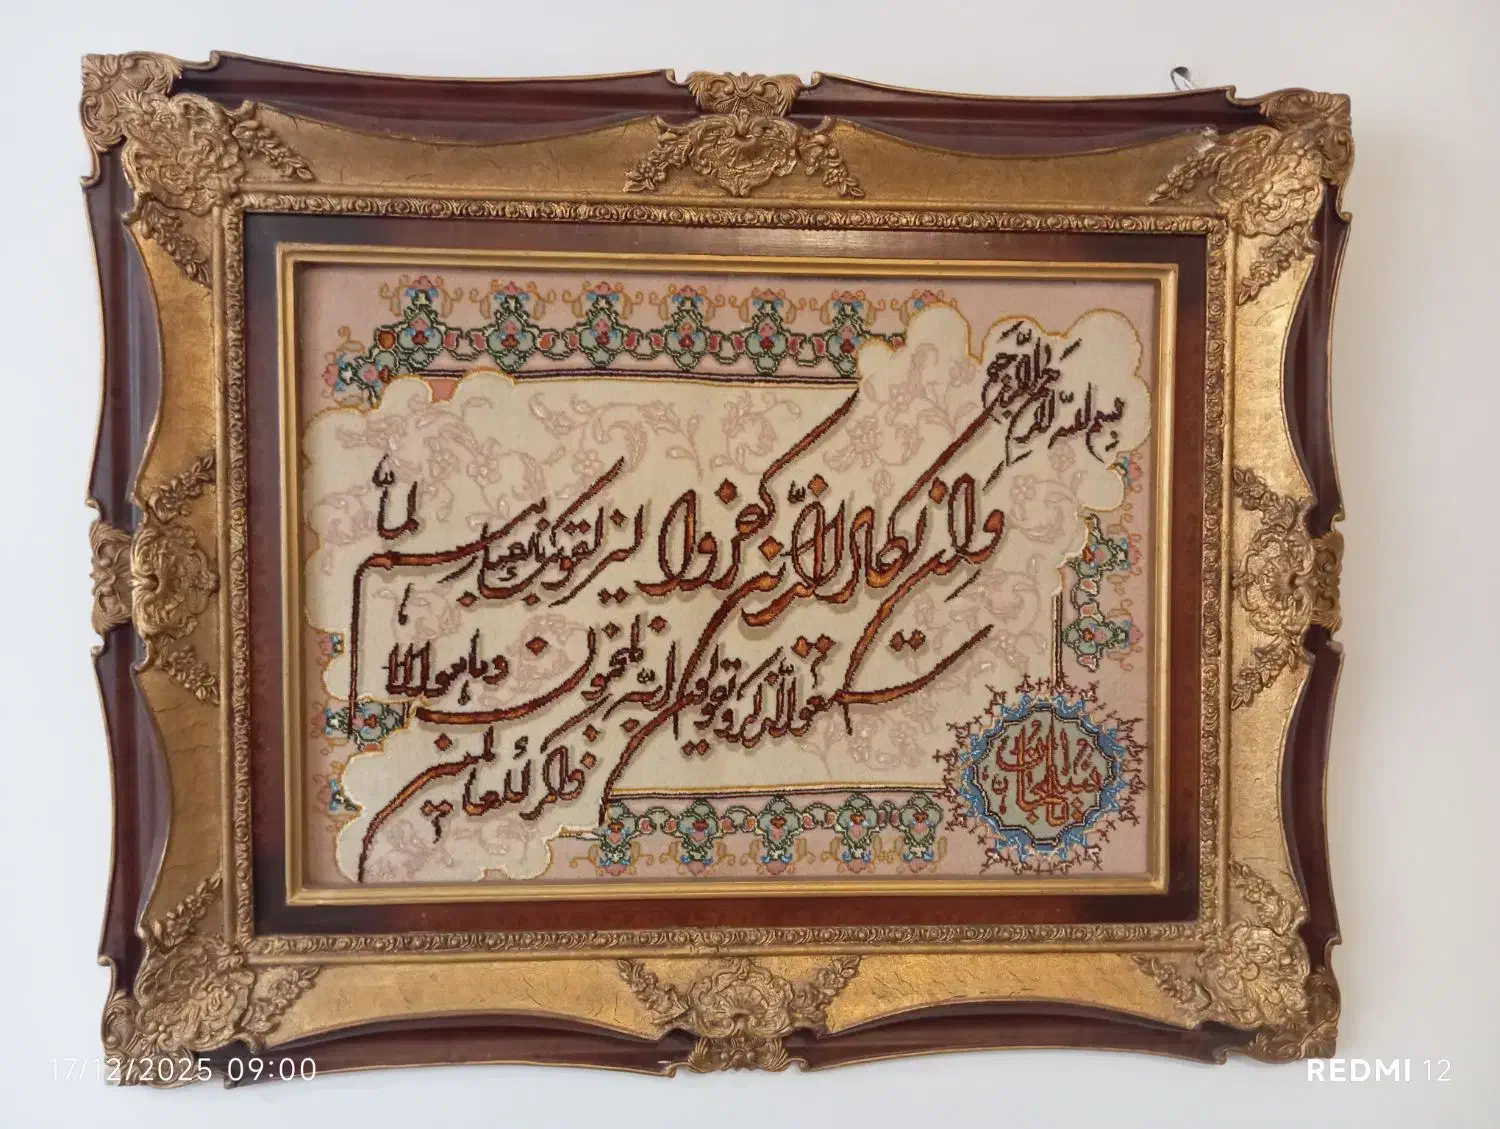 بسم الله الرحمن الرحیم
وان یکاد الذین کفروا لیزلقونک بابصارهم لما
سمعوا الذکر و یقولون انه لمجنون و ما هو الا
ذکر للعالمین
17/12/2025 09:00
REDMI 12